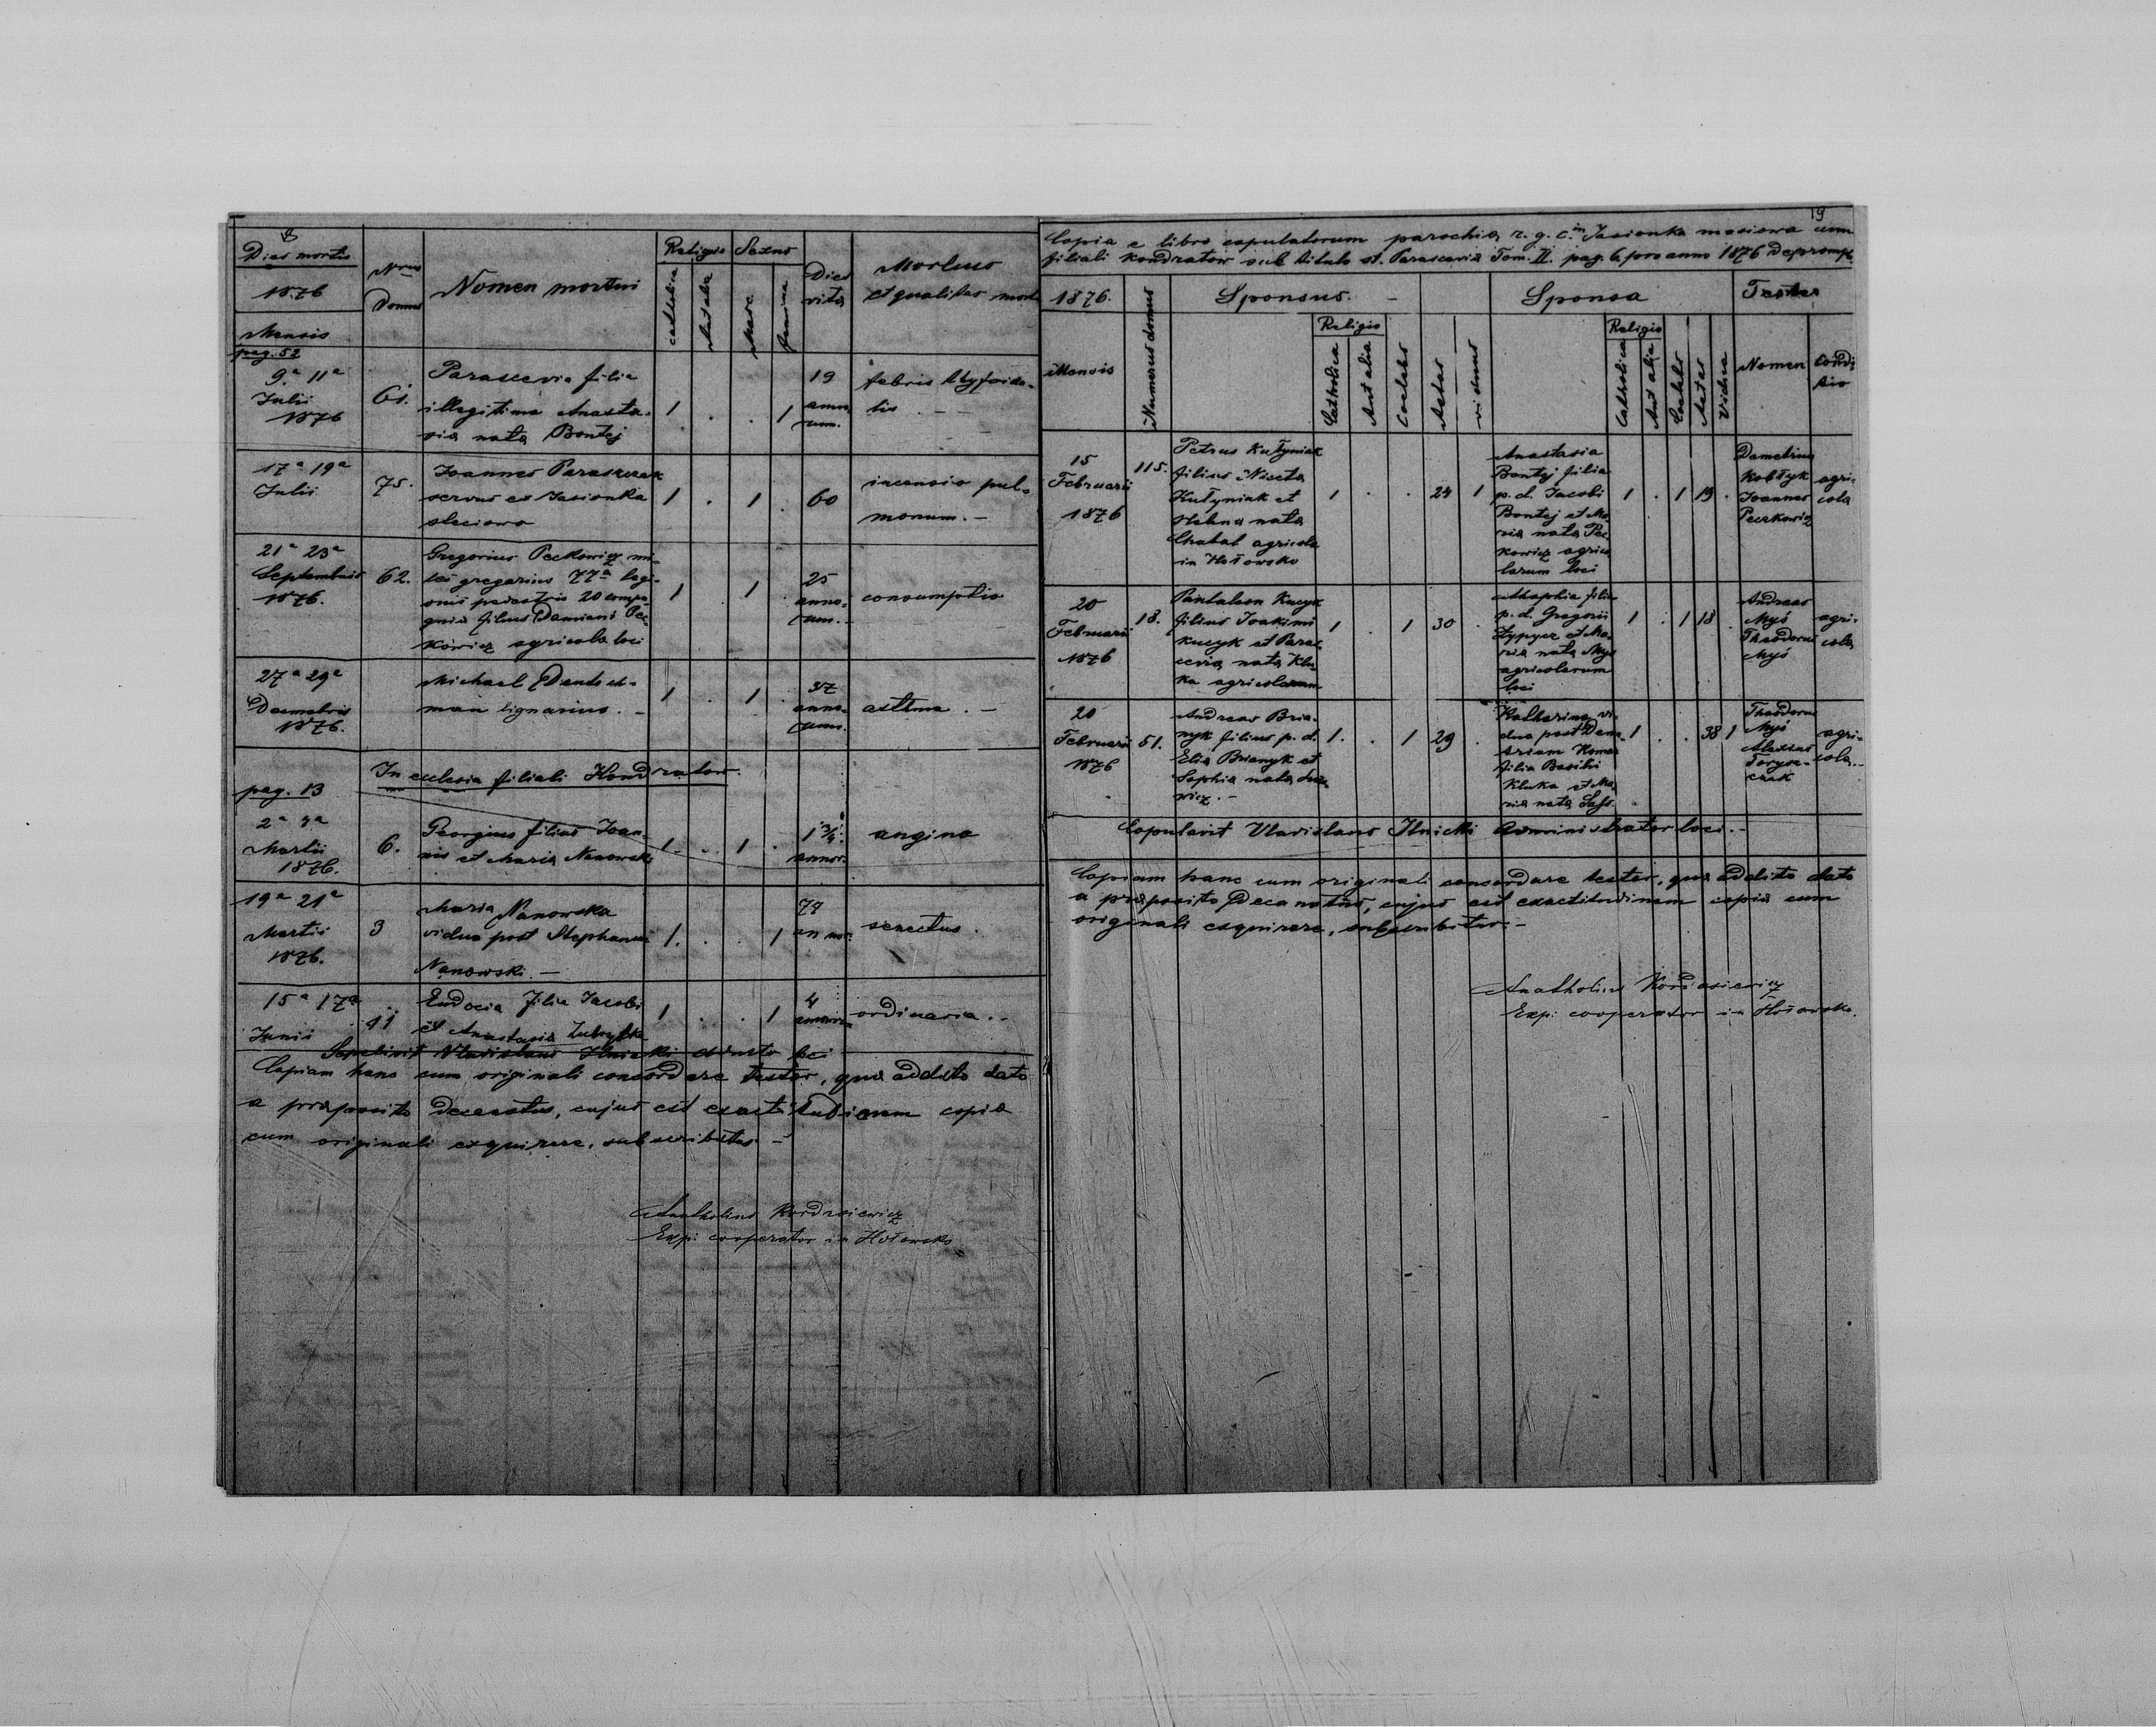 8
Dies mortis
1876
Mensis
Nrus
Domus
Nomen mortui
Religio
Catholica
Aut alia
Sexus
Masc
femina
Dies
vitæ
Morbus
et qualitas mortis
pag. 52
9ª 11ª
Julii
1876
61.
Parascevia filia
illegitima Anasta-
siæ nata Bontej
1 . . 1
19
anno-
rum.
febris typhoida-
lis . —
17ª 19ª
Julii
75.
Joannes Paraszczak
servus ex Jasionka
steciowa
1 . 1 .
60
incensio pul-
monum. —
21ª 23ª
Septembris
1876.
62.
Gregorius Peckowicz mi-
les gregarius 77ª legi-
onis pedestris 20 compa-
gniæ filius Damiani Pec-
kowicz agricola loci
1 . 1 .
25
anno-
rum. —
consumptio
27ª 29ª
Decembris
1876.
Michael Deutsch-
man lignarius . —
1 . 1 .
37
anno-
rum.
asthma . —
In ecclesia filiali Kondratow.
pag. 13
2ª 4ª
Martii
1876.
6.
Georgius filius Joan-
nis et Maria Nanowski
1 . 1 .
1 3/4
annor.
angina
19ª 21ª
Martii
1876.
3
Maria Nanowska
vidua post Stephanum
Nanowski. —
1 . . 1
74
annor.
senectus .
15ª 17ª
Junii
41
Eudocia filia Jacobi
et Anastasia
1 . . 1
4
annorum
ordinaria . -
Sepelivit Vladislaus Ilnicki admstr loci
Copiam hanc cum originali concordare testor, qua addito dato
a præposito decanatus, cujus est exactitudinem copiæ
cum originali exquirere, subscribitur —
Anatholius Kordasiewicz
Exp: cooperator in Hołowsko
9
Copia e libro copulatorum parochiæ r. g. c. in Jasionka masiowa cum
filiali Kondratow sub titulo st. Parasceviæ Tom. II. pag. 6 pro anno 1876 deprompt.
1876.
Mensis
Numerus domus
Sponsus. —
Religio
Catholica
Aut alia
Coelebs
Aetas
viduus
Sponsa
Religio
Catholica
Aut alia
Coelebs
Aetas
Vidua
Testes
Nomen
Condi
tio
15
Februarii
1876
115.
Petrus Kutyniak
filius Niceta
Kutyniak et
Helena nata
Chabal agricola
in Hołowsko
1 . . 24 1
Anastasia
Bontej filia
p. d. Jacobi
Bontej et Ma-
ria nata Pec-
kowicz agrico
larum loci
1 . 1 19 .
Demetrius
Kobłyk
Joannes
Peczkowicz
agri-
cola
20
Februarii
1876
18.
Pantaleon Kucyk
filius Joakimi
Kucyk et Paras-
cevia nata Klu-
ka agricolarum
1 . 1 30 .
Maphia filia
p. d. Gregorii
Łypycz et Ma-
ria nata Myś
agricolarum
loci
1 . 1 18 .
Andreas
Myś
Theodorus
Myś
agri-
cola
20
Februarii
1876
51.
Andreas Bria-
nyk filius p. d.
Elia Brianyk et
Sophia nata
1 . . 1 29 .
Katharina vi-
dua post Deme-
trium
filia Basilii
Kluka et Ma-
ria nata
1 . . 38 1
Theodorus
Myś
Alexius
agri-
cola. -
Copulavit Vladislaus Ilnicki Administrator loci. —
Copiam hanc cum originali concordare testor, qua addito dato
a præposito Decanatus, cujus est exactitudinem copiæ cum
originali exquirere, subscribitur. —
Anatholius Kordasiewicz
Exp: cooperator in Hołowsko.